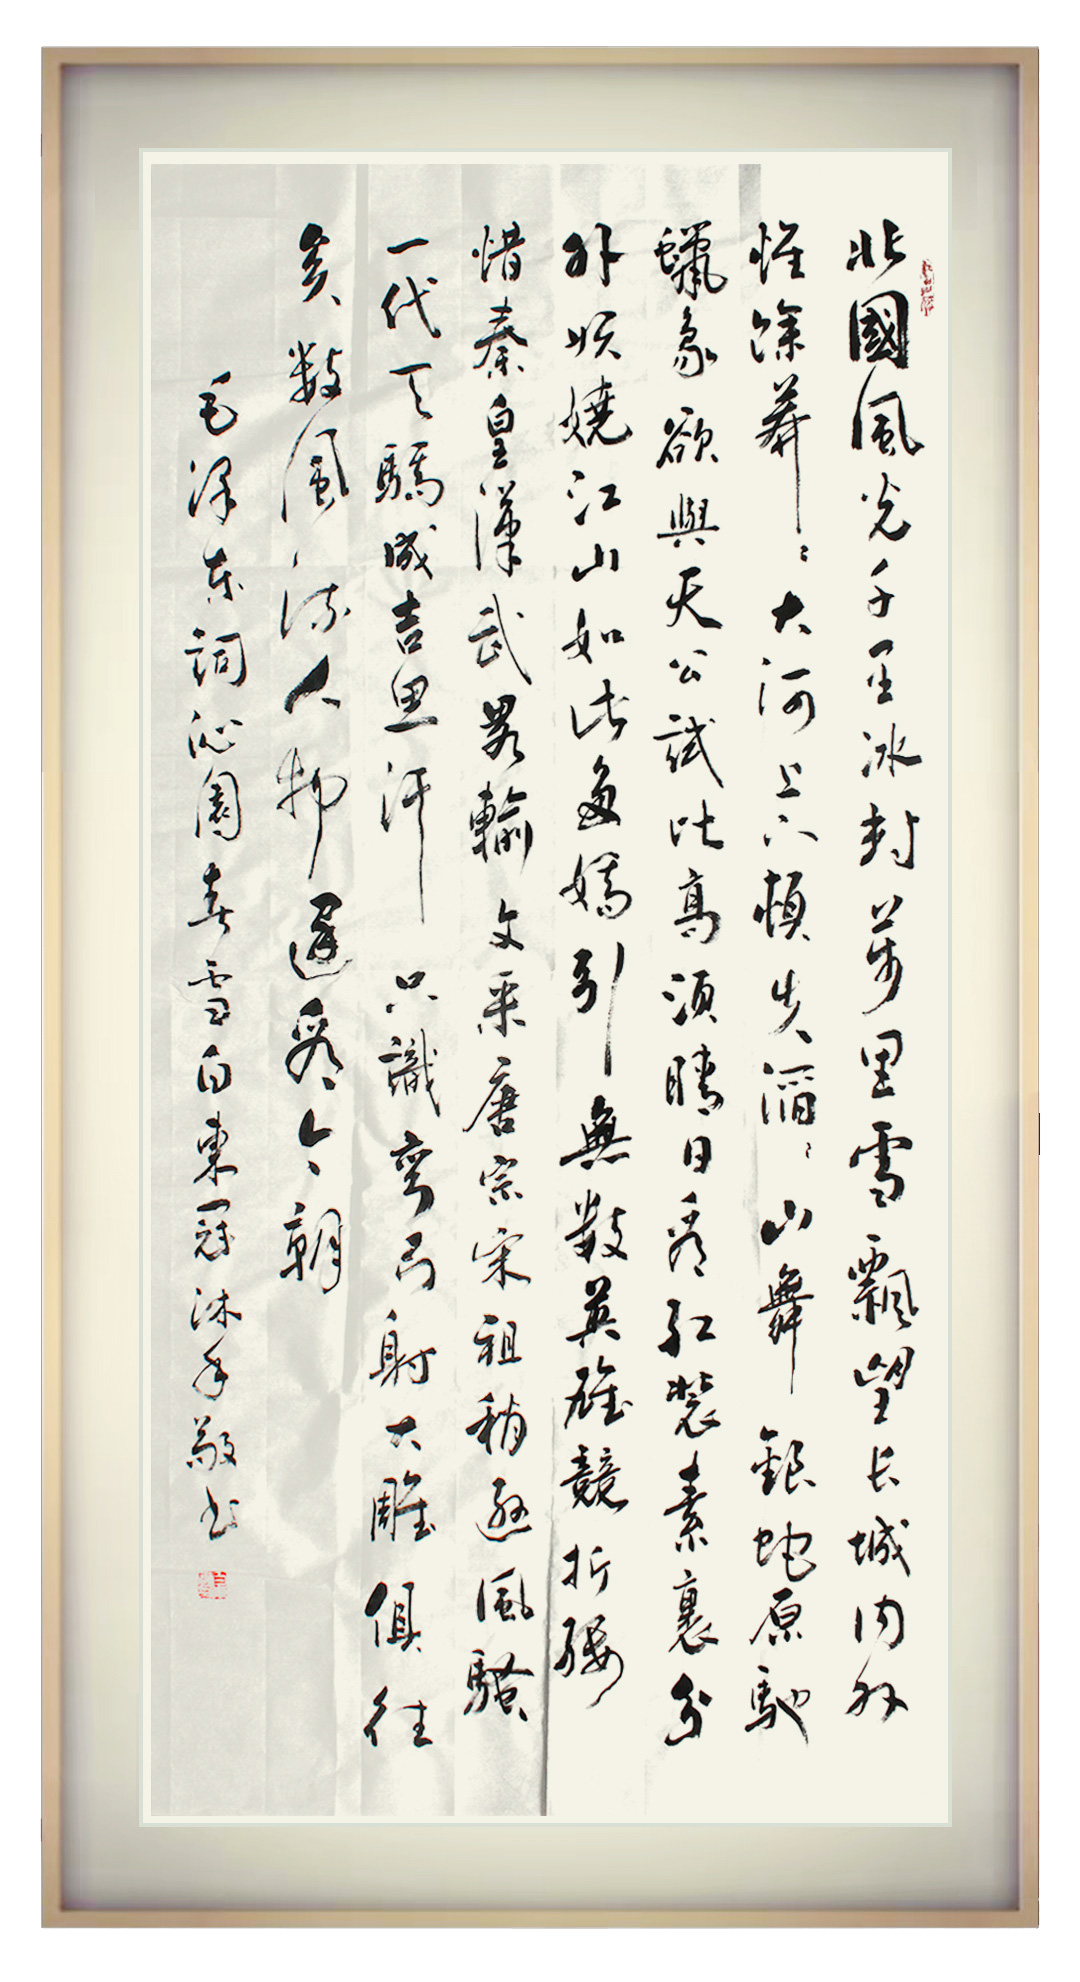 北國風光千里冰封萬里雪飄望长城内外
惟馀莽〻大河上下頓失滔〻山舞銀蛇原馳
蠟象欲與天公試比高須晴日看红裝素裹分
外妖嬈江山如此多嬌引無數英雄競折腰
惜秦皇漢武畧輸文采唐宗宋祖稍遜風騷
一代天驕成吉思汗只識彎弓射大雕俱往
矣数風流人物還看今朝
毛泽东詞沁園春雪白東冠沐手敬书